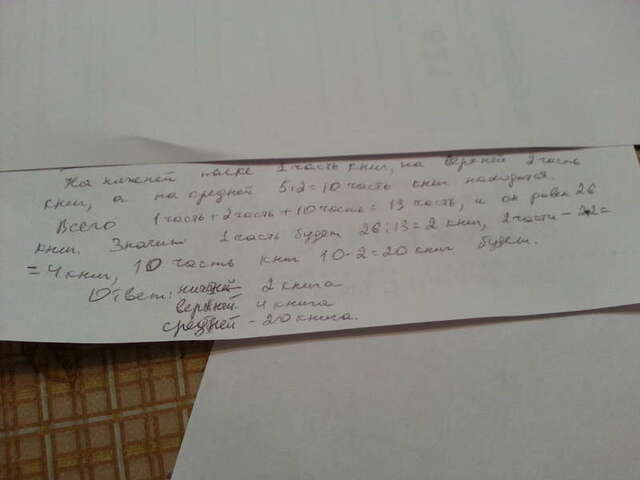 На нижней полке 1 часть книг, на верхней 2 часть
книг, а на средней 5·2=10 часть книг находится.
Всего 1 часть+2 часть+10 часть= 13 часть, и он равен 26
книг. Значит 1 часть будет 26:13=2 книг, 2 части - 2·2=
=4 книг, 10 часть книг 10·2=20 книг будет.
Ответ: нижней 2 книга
верхней 4 книга
средней - 20 книга.